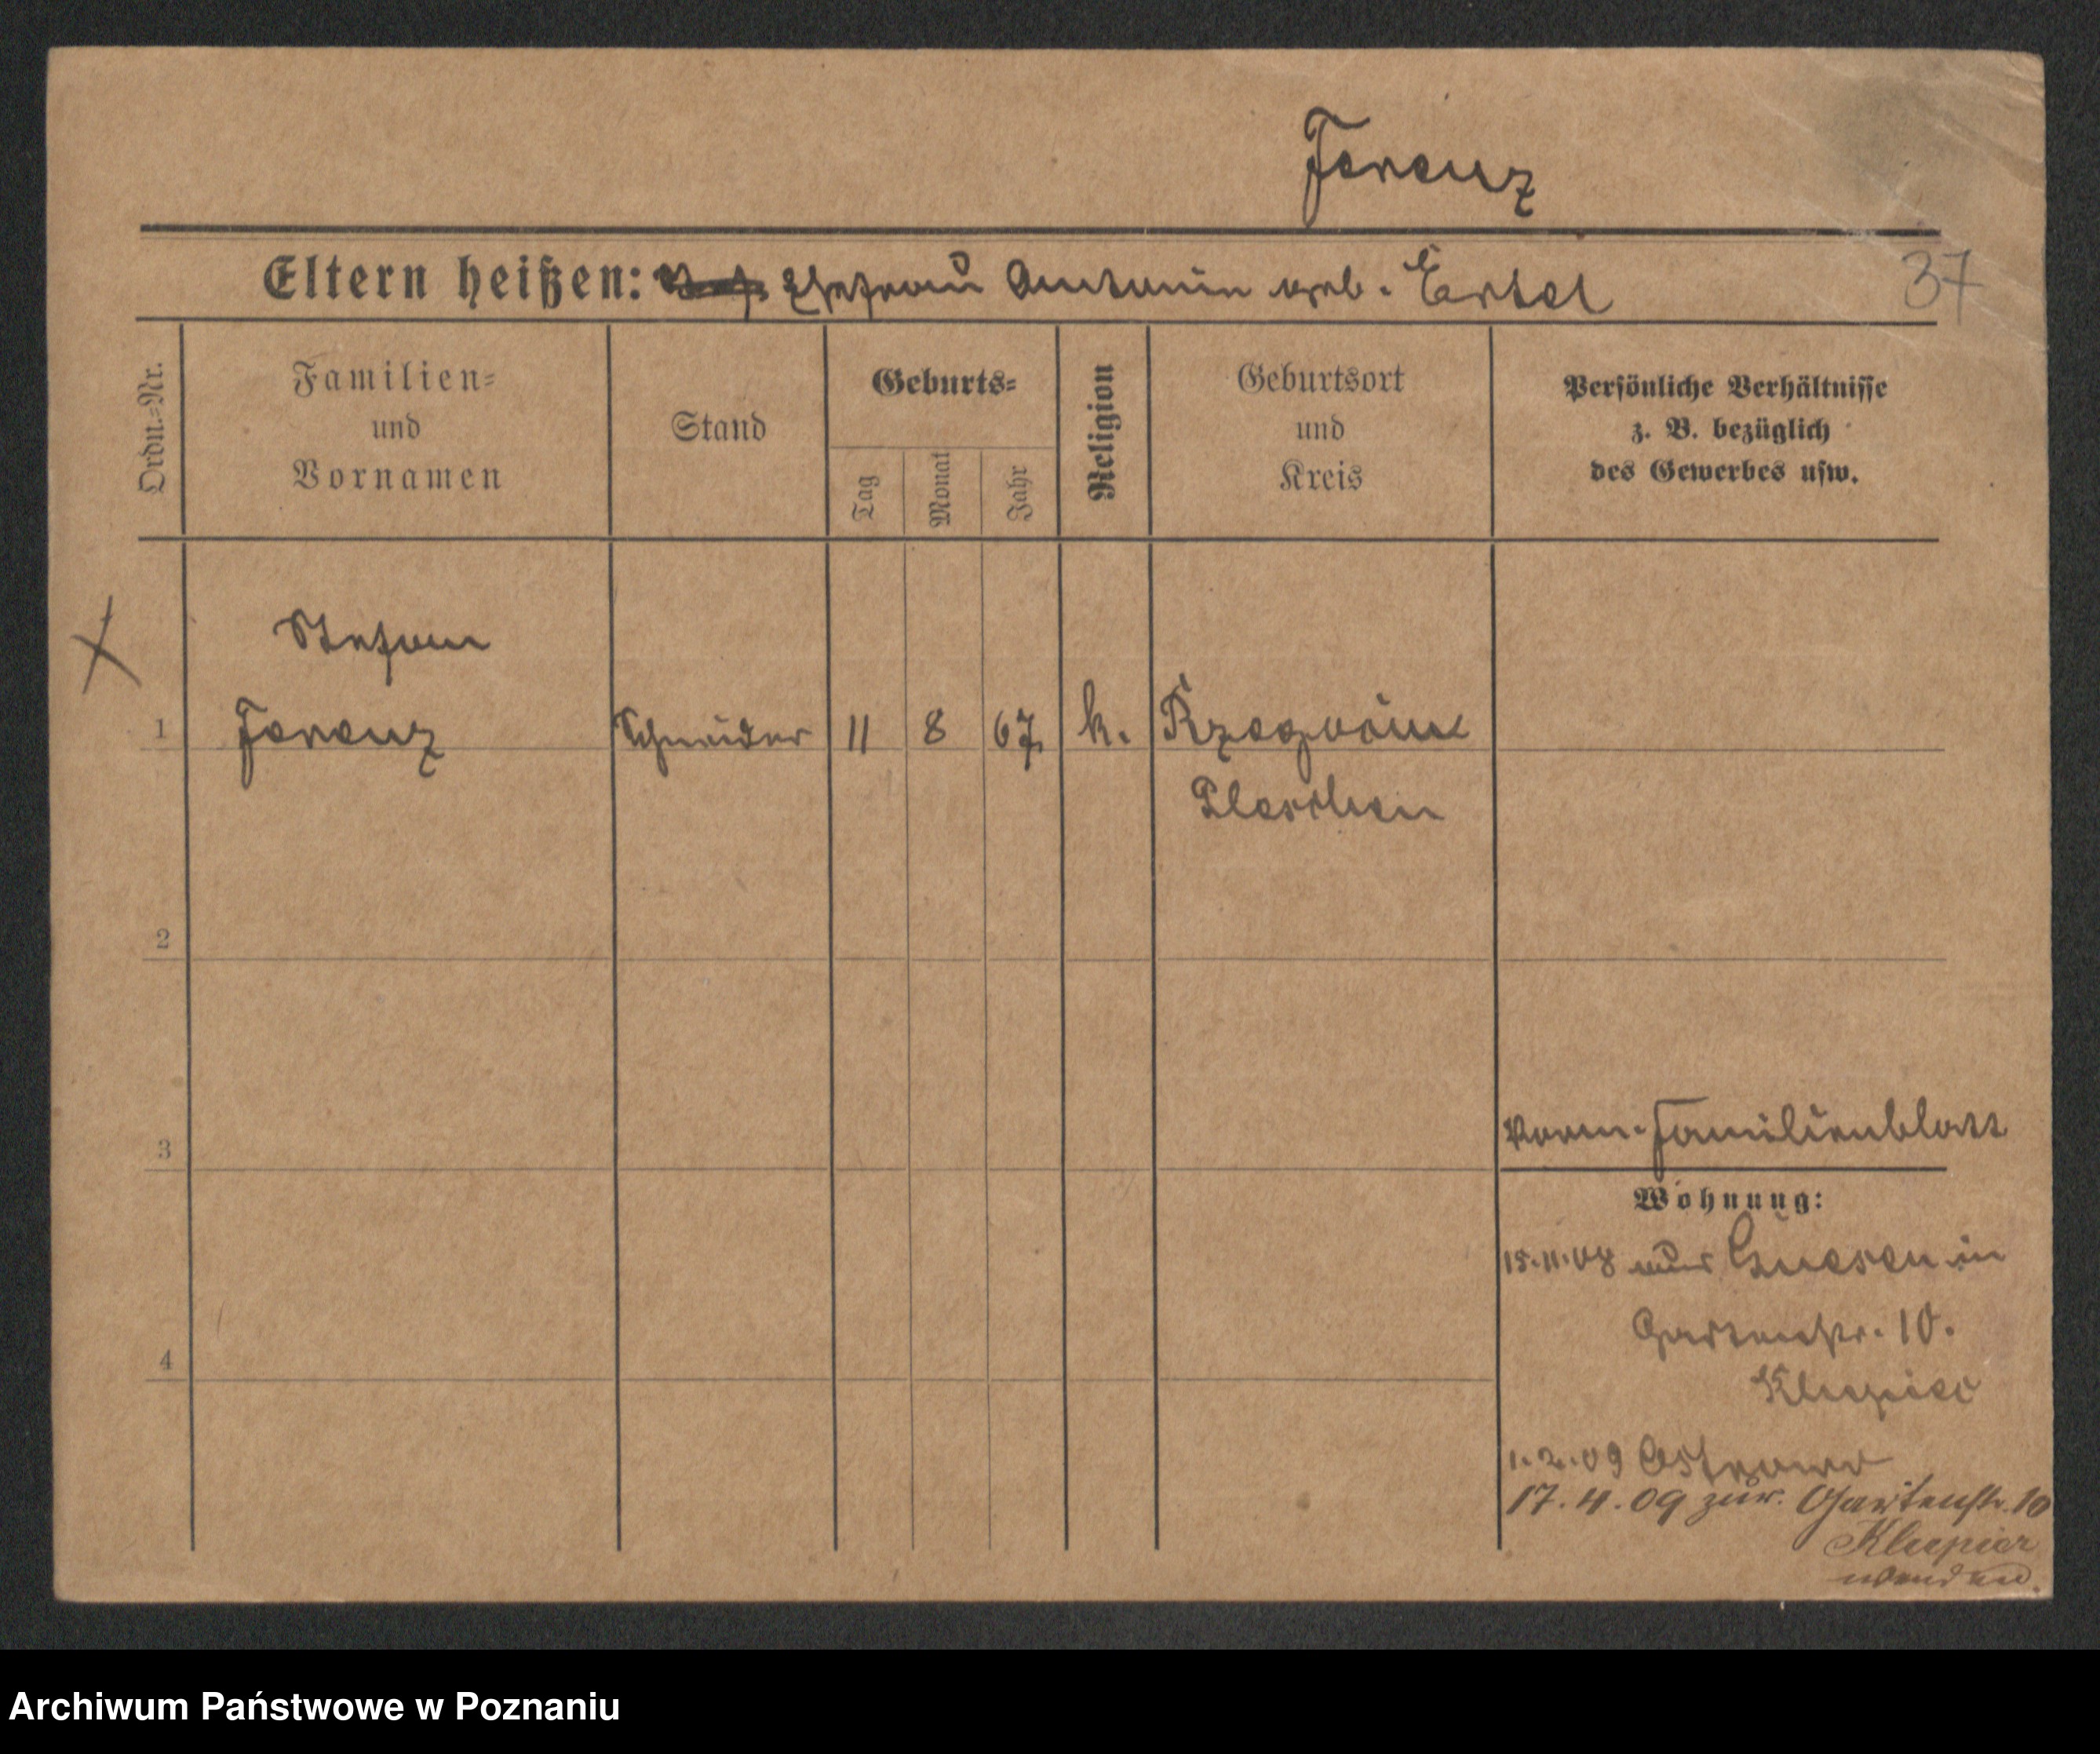 Ferenz
Eltern heißen: Ehefrau Antonin geb. Ertel
37
Ordn.=Nr.
Familien=
und
Vornamen
Stand
Geburts=
Tag
Monat
Jahr
Religion
Geburtsort
und
Kreis
Persönliche Verhältnisse
z. B. bezüglich
des Gewerbes usw.
Stefan
1 Ferenz Schneider 11 8 67 k.
Pleschen
2
3
Familienblatt
Wohnung:
15.11.08 aus Gnesen in
Gartenstr. 10.
Klupiec
1.2.09 Ostrowo
17.4.09 zur. Gartenstr. 10
wenden.
4
Archiwum Państwowe w Poznaniu